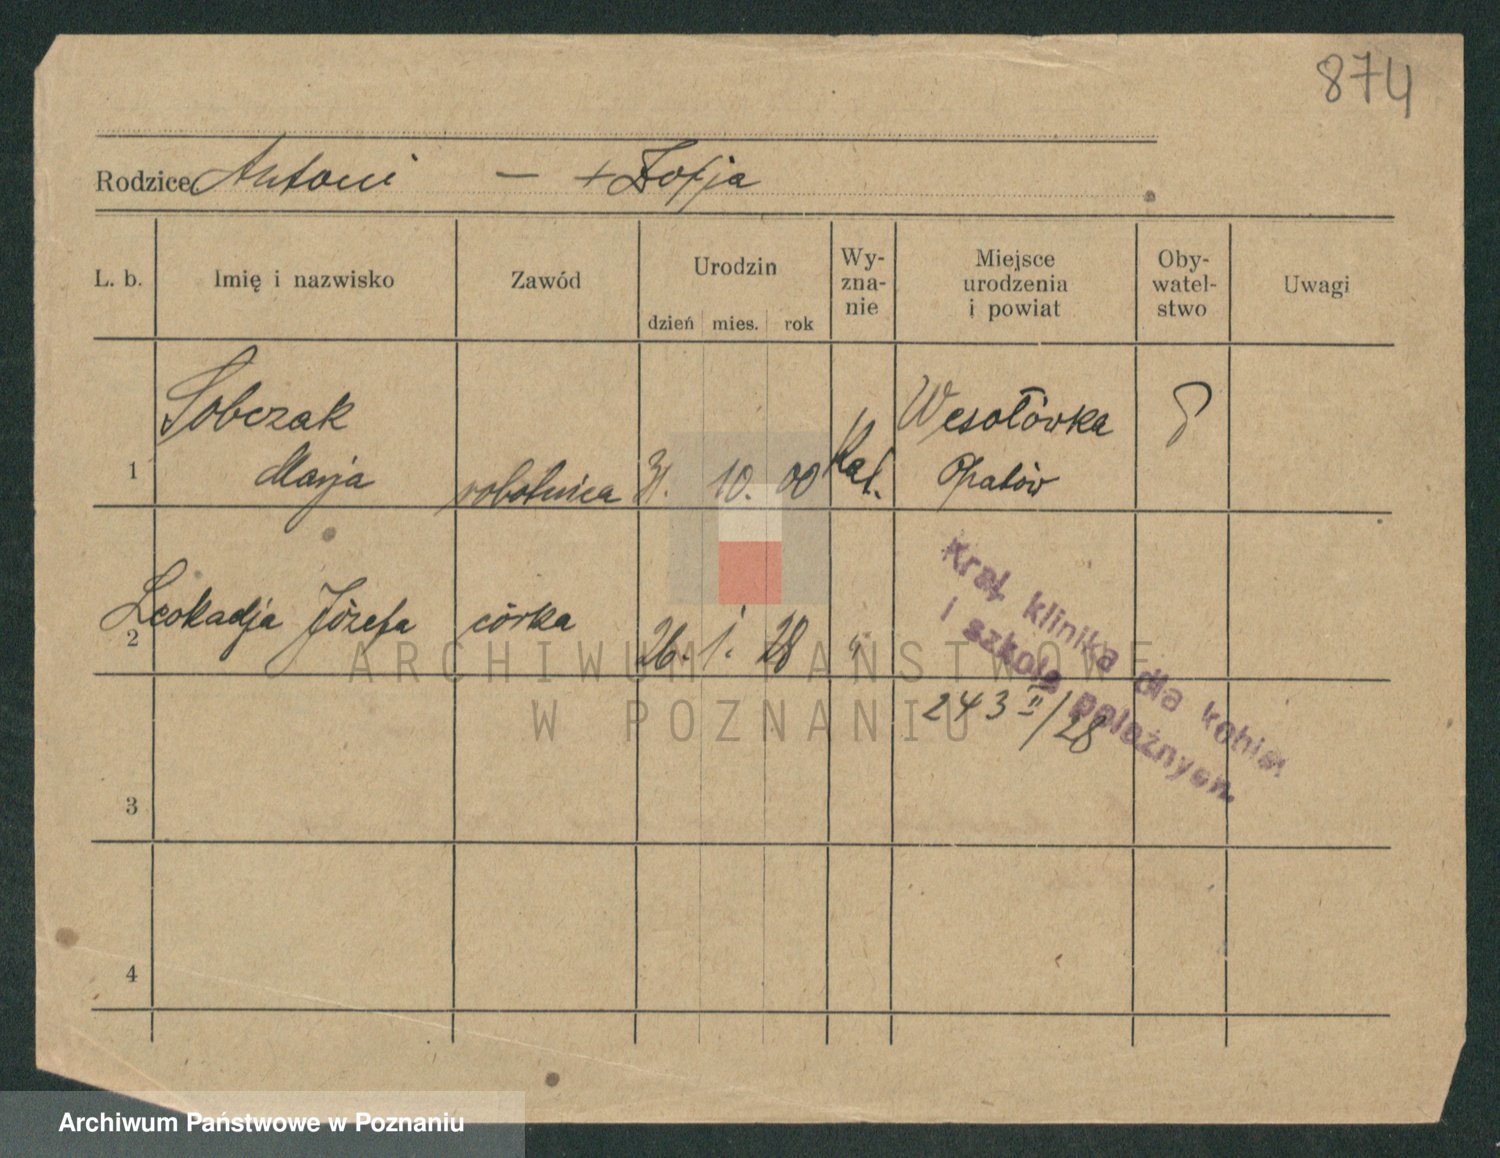 874
Rodzice Antoni — + Zofja
L. b. Imię i nazwisko Zawód Urodzin dzień mies. rok Wy-zna-nie Miejsce urodzenia i powiat Oby-watel-stwo Uwagi
Sobczak Wesołówka
1 Marja robotnica 31. 10. 00 Kat. Opatów
2 Leokadja Józefa córka 26. 1. 28 "
Kraj. klinika dla kobiet
i szkoła położnych.
243 II/28
3
4
ARCHIWUM PAŃSTWOWE
W POZNANIU
Archiwum Państwowe w Poznaniu